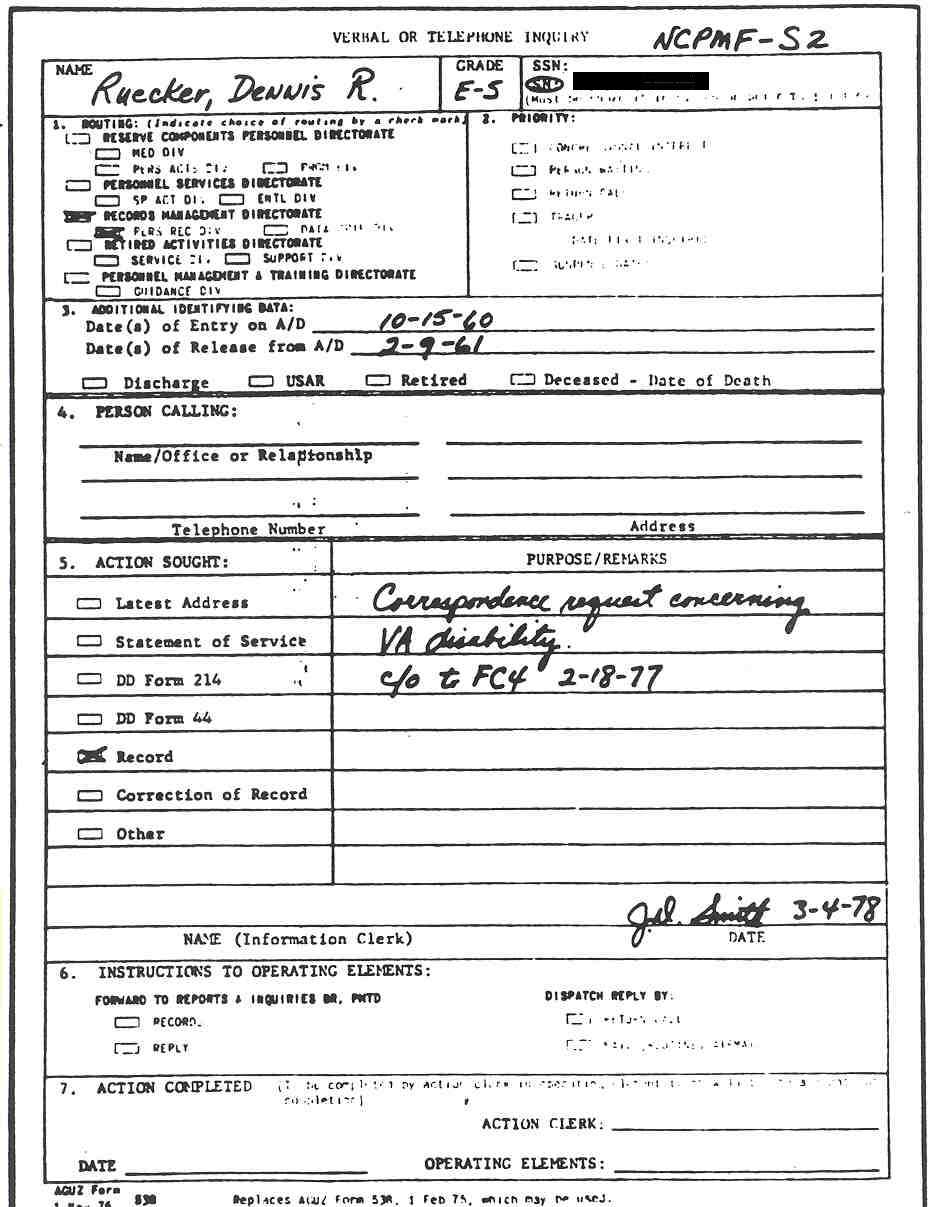 VERBAL OR TELEPHONE INQUIRY NCPMF-S2
NAME Ruecker, Dennis R. GRADE E-5 SSN:
SN:
1. ROUTING: (Indicate choice of routing by a check mark) 2. PRIORITY:
RESERVE COMPONENTS PERSONNEL DIRECTORATE
MED DIV
PERS ACTS DIV
PERSONNEL SERVICES DIRECTORATE
SP ACT DIV ENTL DIV
RECORDS MANAGEMENT DIRECTORATE
PERS REC DIV DATA DIV
RETIRED ACTIVITIES DIRECTORATE
SERVICE DIV SUPPORT DIV
PERSONNEL MANAGEMENT & TRAINING DIRECTORATE
GUIDANCE DIV
PERSON WAITING
RETURN CALL
TRACER
3. ADDITIONAL IDENTIFYING DATA:
Date(s) of Entry on A/D 10-15-60
Date(s) of Release from A/D 2-9-61
Discharge USAR Retired Deceased - Date of Death
4. PERSON CALLING:
Name/Office or Relationship
Telephone Number Address
5. ACTION SOUGHT: PURPOSE/REMARKS
Latest Address Correspondence request concerning
Statement of Service VA disability.
DD Form 214 c/o to FC4 2-18-77
DD Form 44
Record
Correction of Record
Other
J.D. Smith 3-4-78
NAME (Information Clerk) DATE
6. INSTRUCTIONS TO OPERATING ELEMENTS:
FORWARD TO REPORTS & INQUIRIES BR, PMTD DISPATCH REPLY BY:
RECORD RETURN CALL
REPLY
7. ACTION COMPLETED (To be completed by action clerk in operating element
completion)
ACTION CLERK:
DATE OPERATING ELEMENTS:
AGUZ Form 838 Replaces AGUZ Form 538, 1 Feb 75, which may be used.